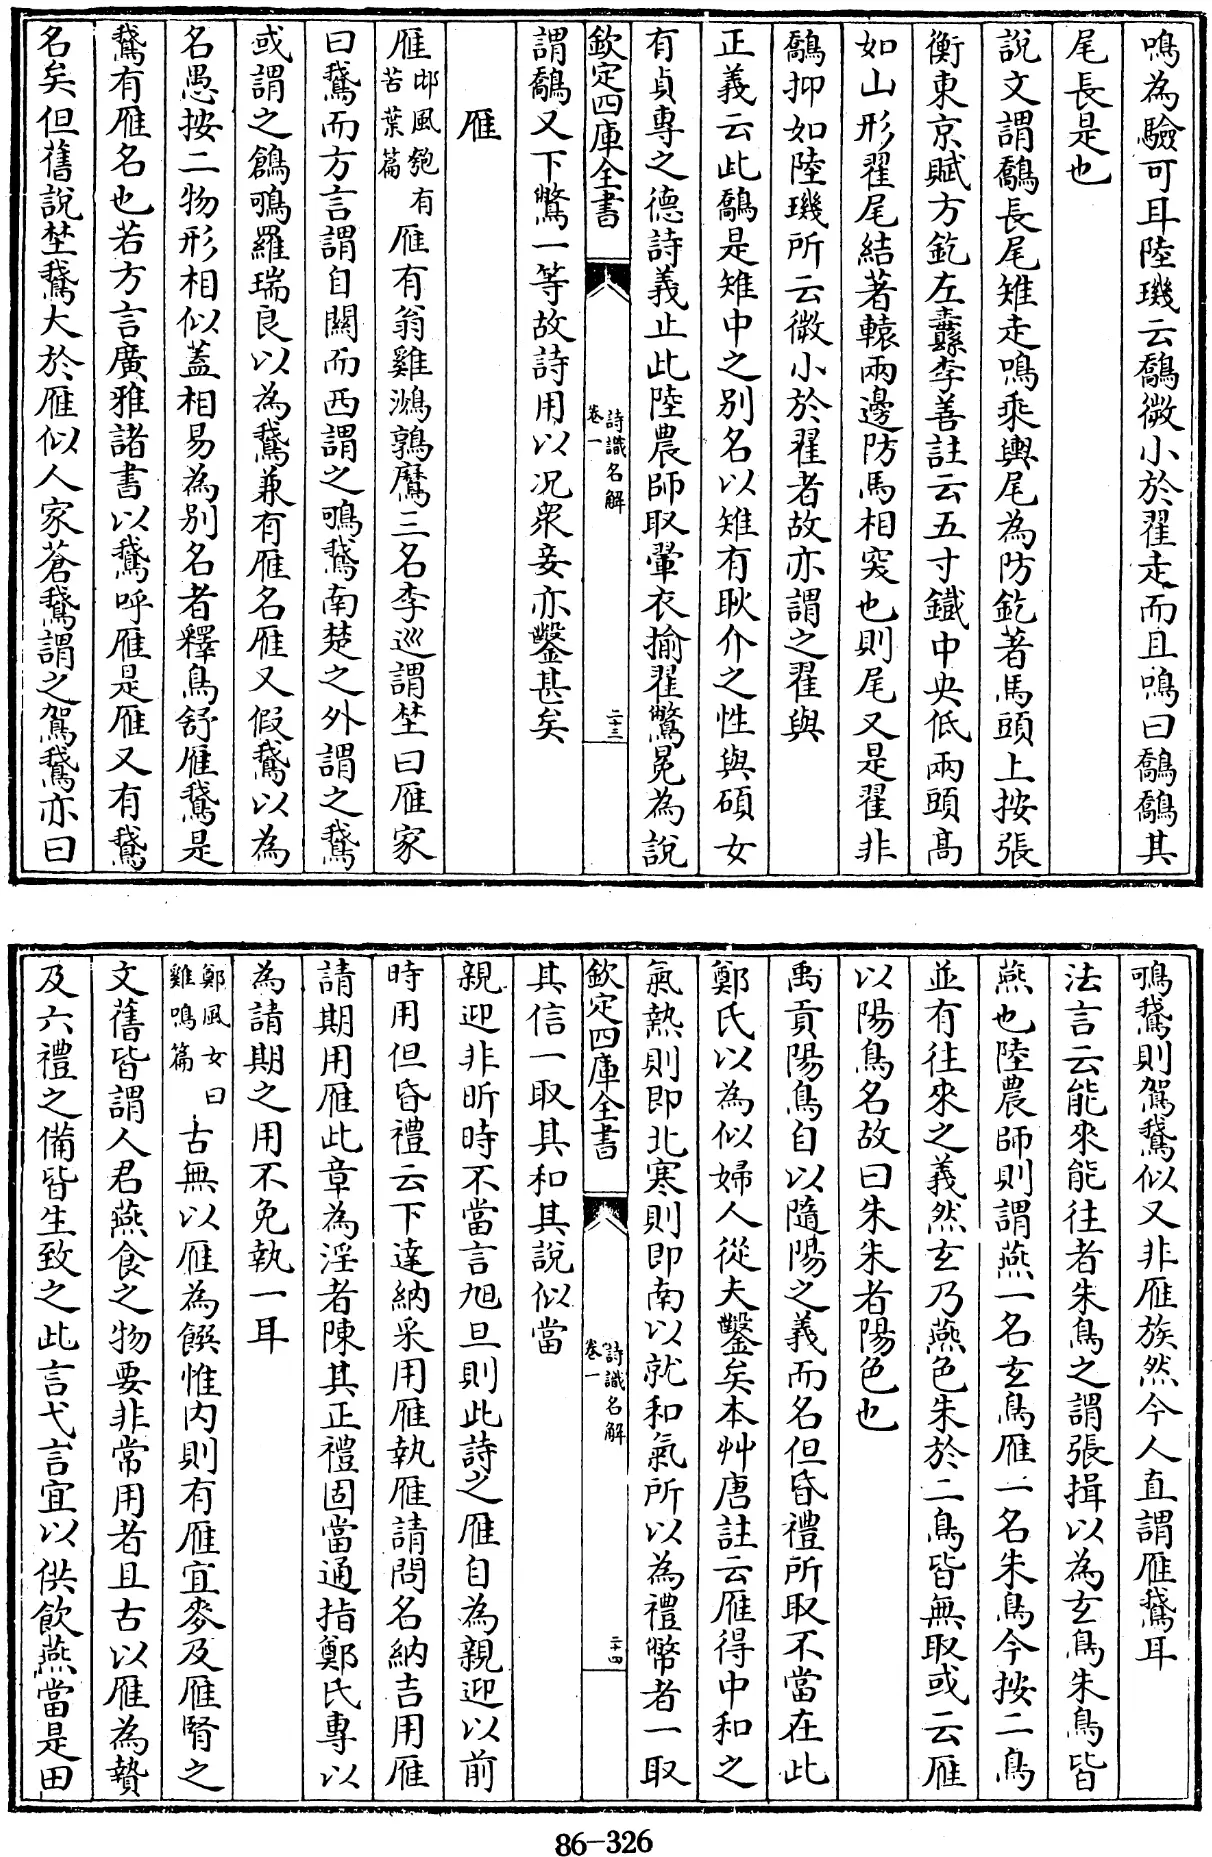 鳴為驗可耳陸璣云鷮微小於翟走而且鳴曰鷮鷮其
尾長是也
說文謂鷮長尾雉走鳴乘輿尾為防釳著馬頭上按張
衡東京賦方釳左纛李善註云五寸鐵中央低兩頭高
如山形翟尾結著轅兩邊防馬相突也則尾又是翟非
鷮抑如陸璣所云微小於翟者故亦謂之翟與
正義云此鷮是雉中之别名以雉有耿介之性與碩女
有貞專之德詩義止此陸農師取翬衣揄翟鷩冕為說
欽定四庫全書
詩識名解
卷一
二十三
謂鷮又下鷩一等故詩用以况衆妾亦鑿甚矣
雁
雁邶風匏有苦葉篇有雁有翁雞鸿鶉鷹三名李巡謂埜曰雁家
曰鵞而方言謂自關而西謂之鳴鵞南楚之外謂之鵞
或謂之鶬鳴羅瑞良以為鵞兼有雁名雁又假鵞以為
名愚按二物形相似蓋相易為别名者釋鳥舒雁鵞是
鵞有雁名也若方言廣雅諸書以鵞呼雁是雁又有鵞
名矣但舊說埜鵞大於雁似人家蒼鵞謂之鴐鵞亦曰
鳴鵞則鴐鵞似又非雁族然今人直謂雁鵞耳
法言云能來能往者朱鳥之謂張揖以為玄鳥朱鳥皆
燕也陸農師則謂燕一名玄鳥雁一名朱鳥今按二鳥
並有往來之義然玄乃燕色朱於二鳥皆無取或云雁
以陽鳥名故曰朱朱者陽色也
禹貢陽鳥自以隨陽之義而名但昏禮所取不當在此
鄭氏以為似婦人從夫鑿矣本艸唐註云雁得中和之
氣熱則即北寒則即南以就和氣所以為禮幣者一取
欽定四庫全書
詩識名解
卷一
二十四
其信一取其和其說似當
親迎非昕時不當言旭旦則此詩之雁自為親迎以前
時用但昏禮云下達納采用雁執雁請問名納吉用雁
請期用雁此章為淫者陳其正禮固當通指鄭氏專以
為請期之用不免執一耳
鄭風女曰雞鳴篇古無以雁為饌惟内則有雁宜麥及雁腎之
文舊皆謂人君燕食之物要非常用者且古以雁為贄
及六禮之備皆生致之此言弋言宜以供飲燕當是田
86-326